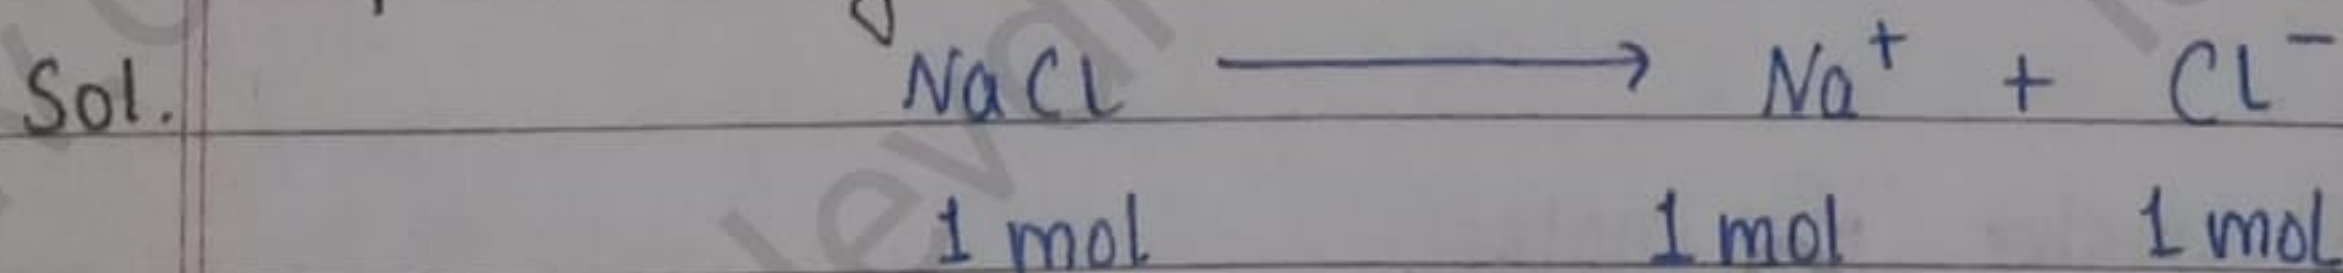 Sol. NaCl ⟶ Na⁺ + Cl⁻
1 mol 1 mol 1 mol